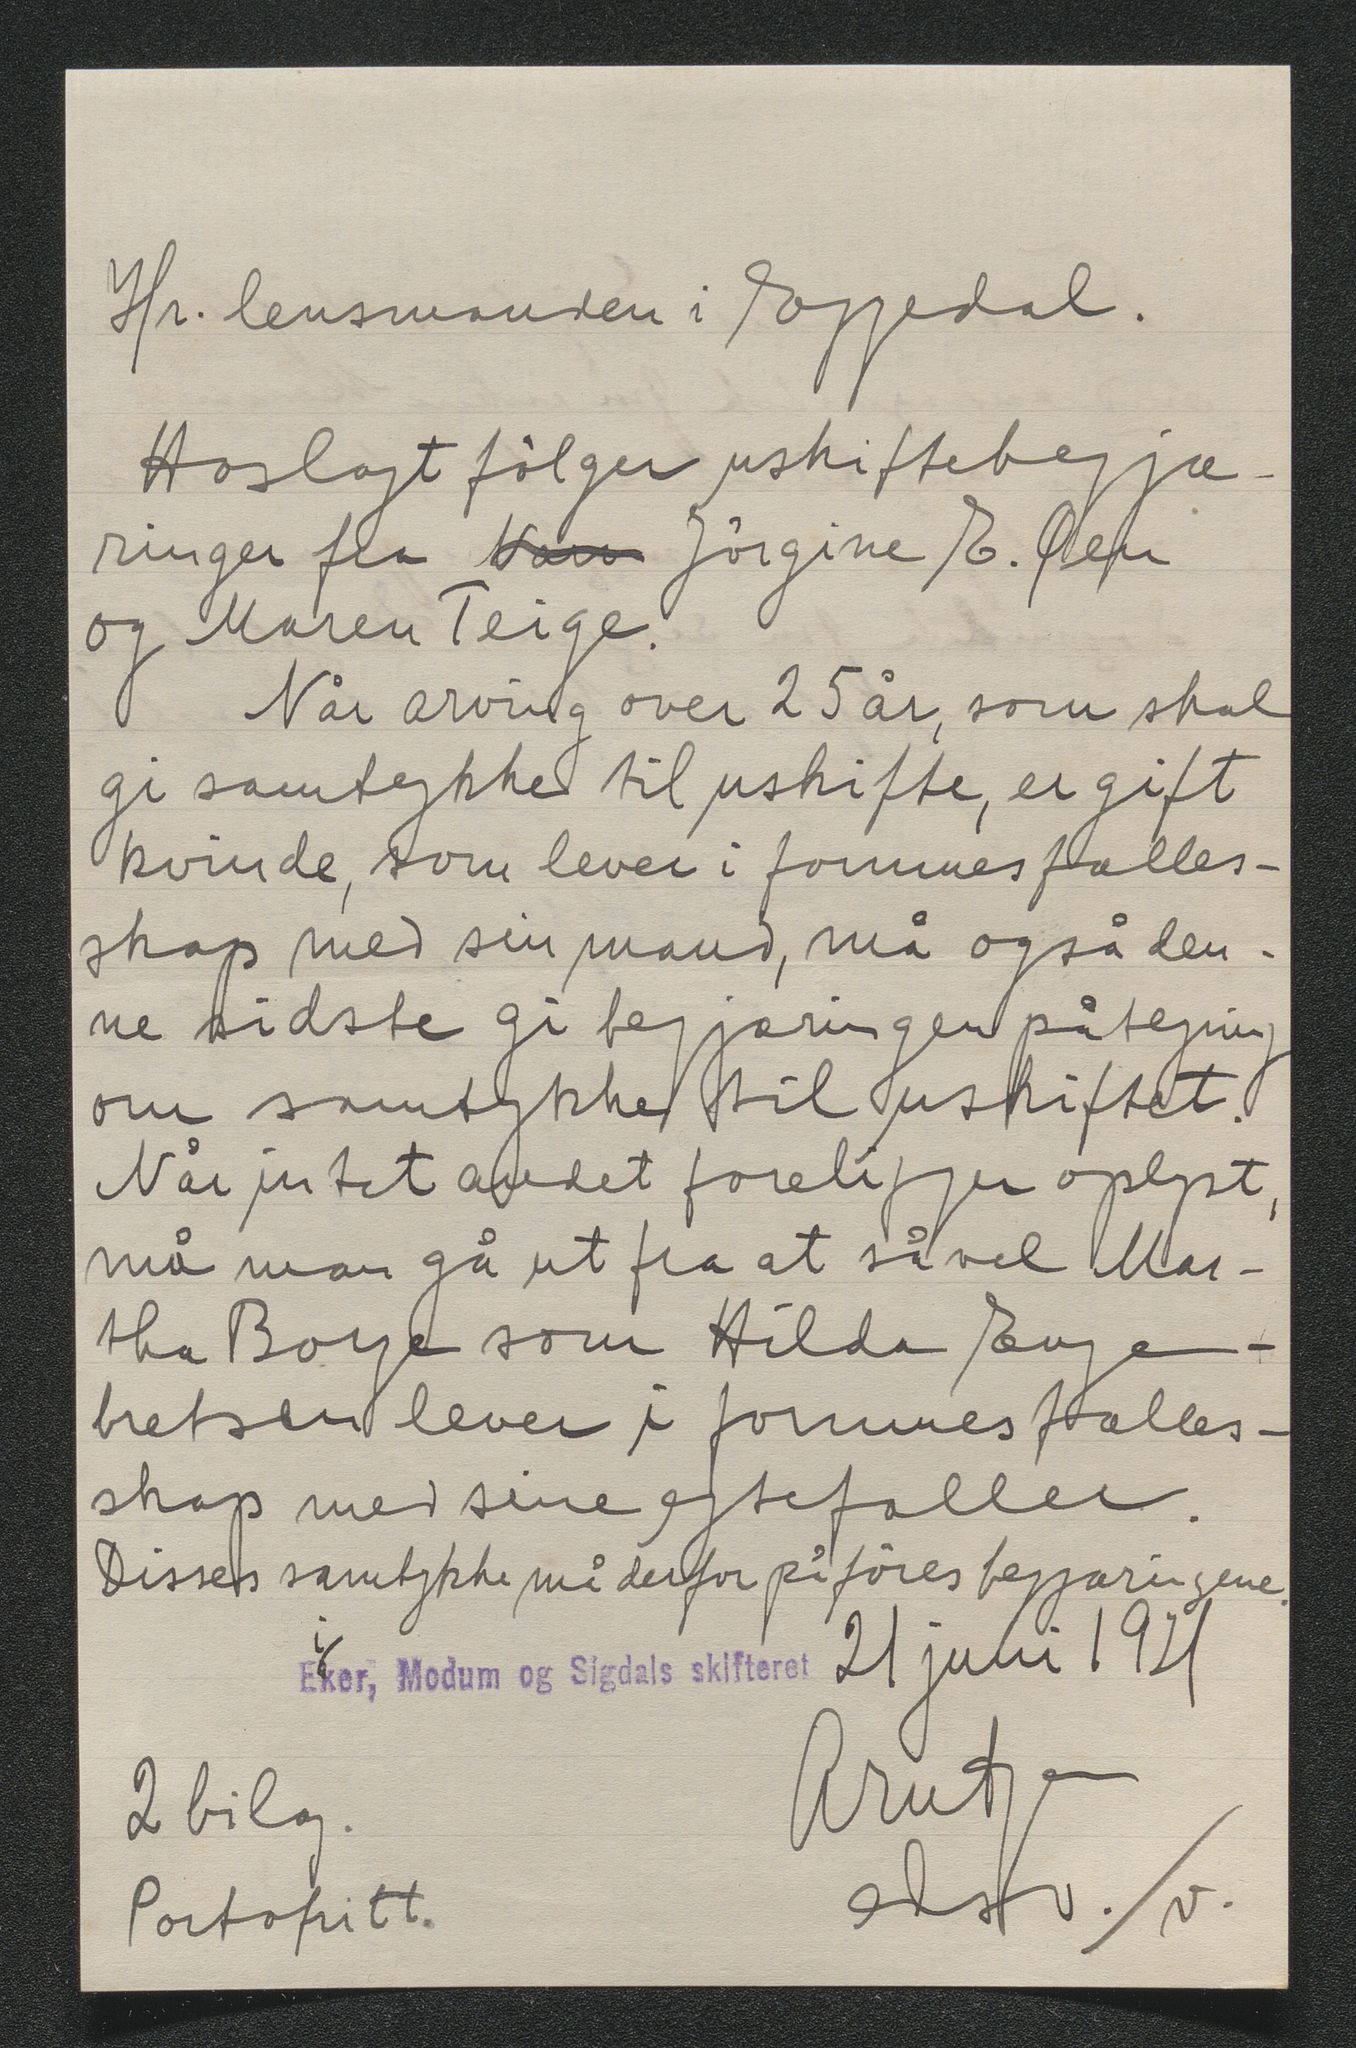 Hr. lensmanden i Eggedal.
Hoslagt fölger uskiftebegjæ-
ringer fra Jörgine E. Øen
og Maren Teige.
Når arving over 25 år, som skal
gi samtykke til uskifte, er gift
kvinde, som lever i formuesfælles-
skap med sin mand, må også den-
ne sidste gi begjæringen påtegning
om samtykke til uskiftet.
Når intet andet foreligger oplyst,
må man gå ut fra at såvel Mar-
tha Borge som Hilda Enge-
bretsen lever i formuesfælles-
skap med sine egtefæller.
Disses samtykke må derfor påföres begjæringene.
i
Eker, Modum og Sigdals skifteret 21 juni 1921
2 bilag.
Portofritt.